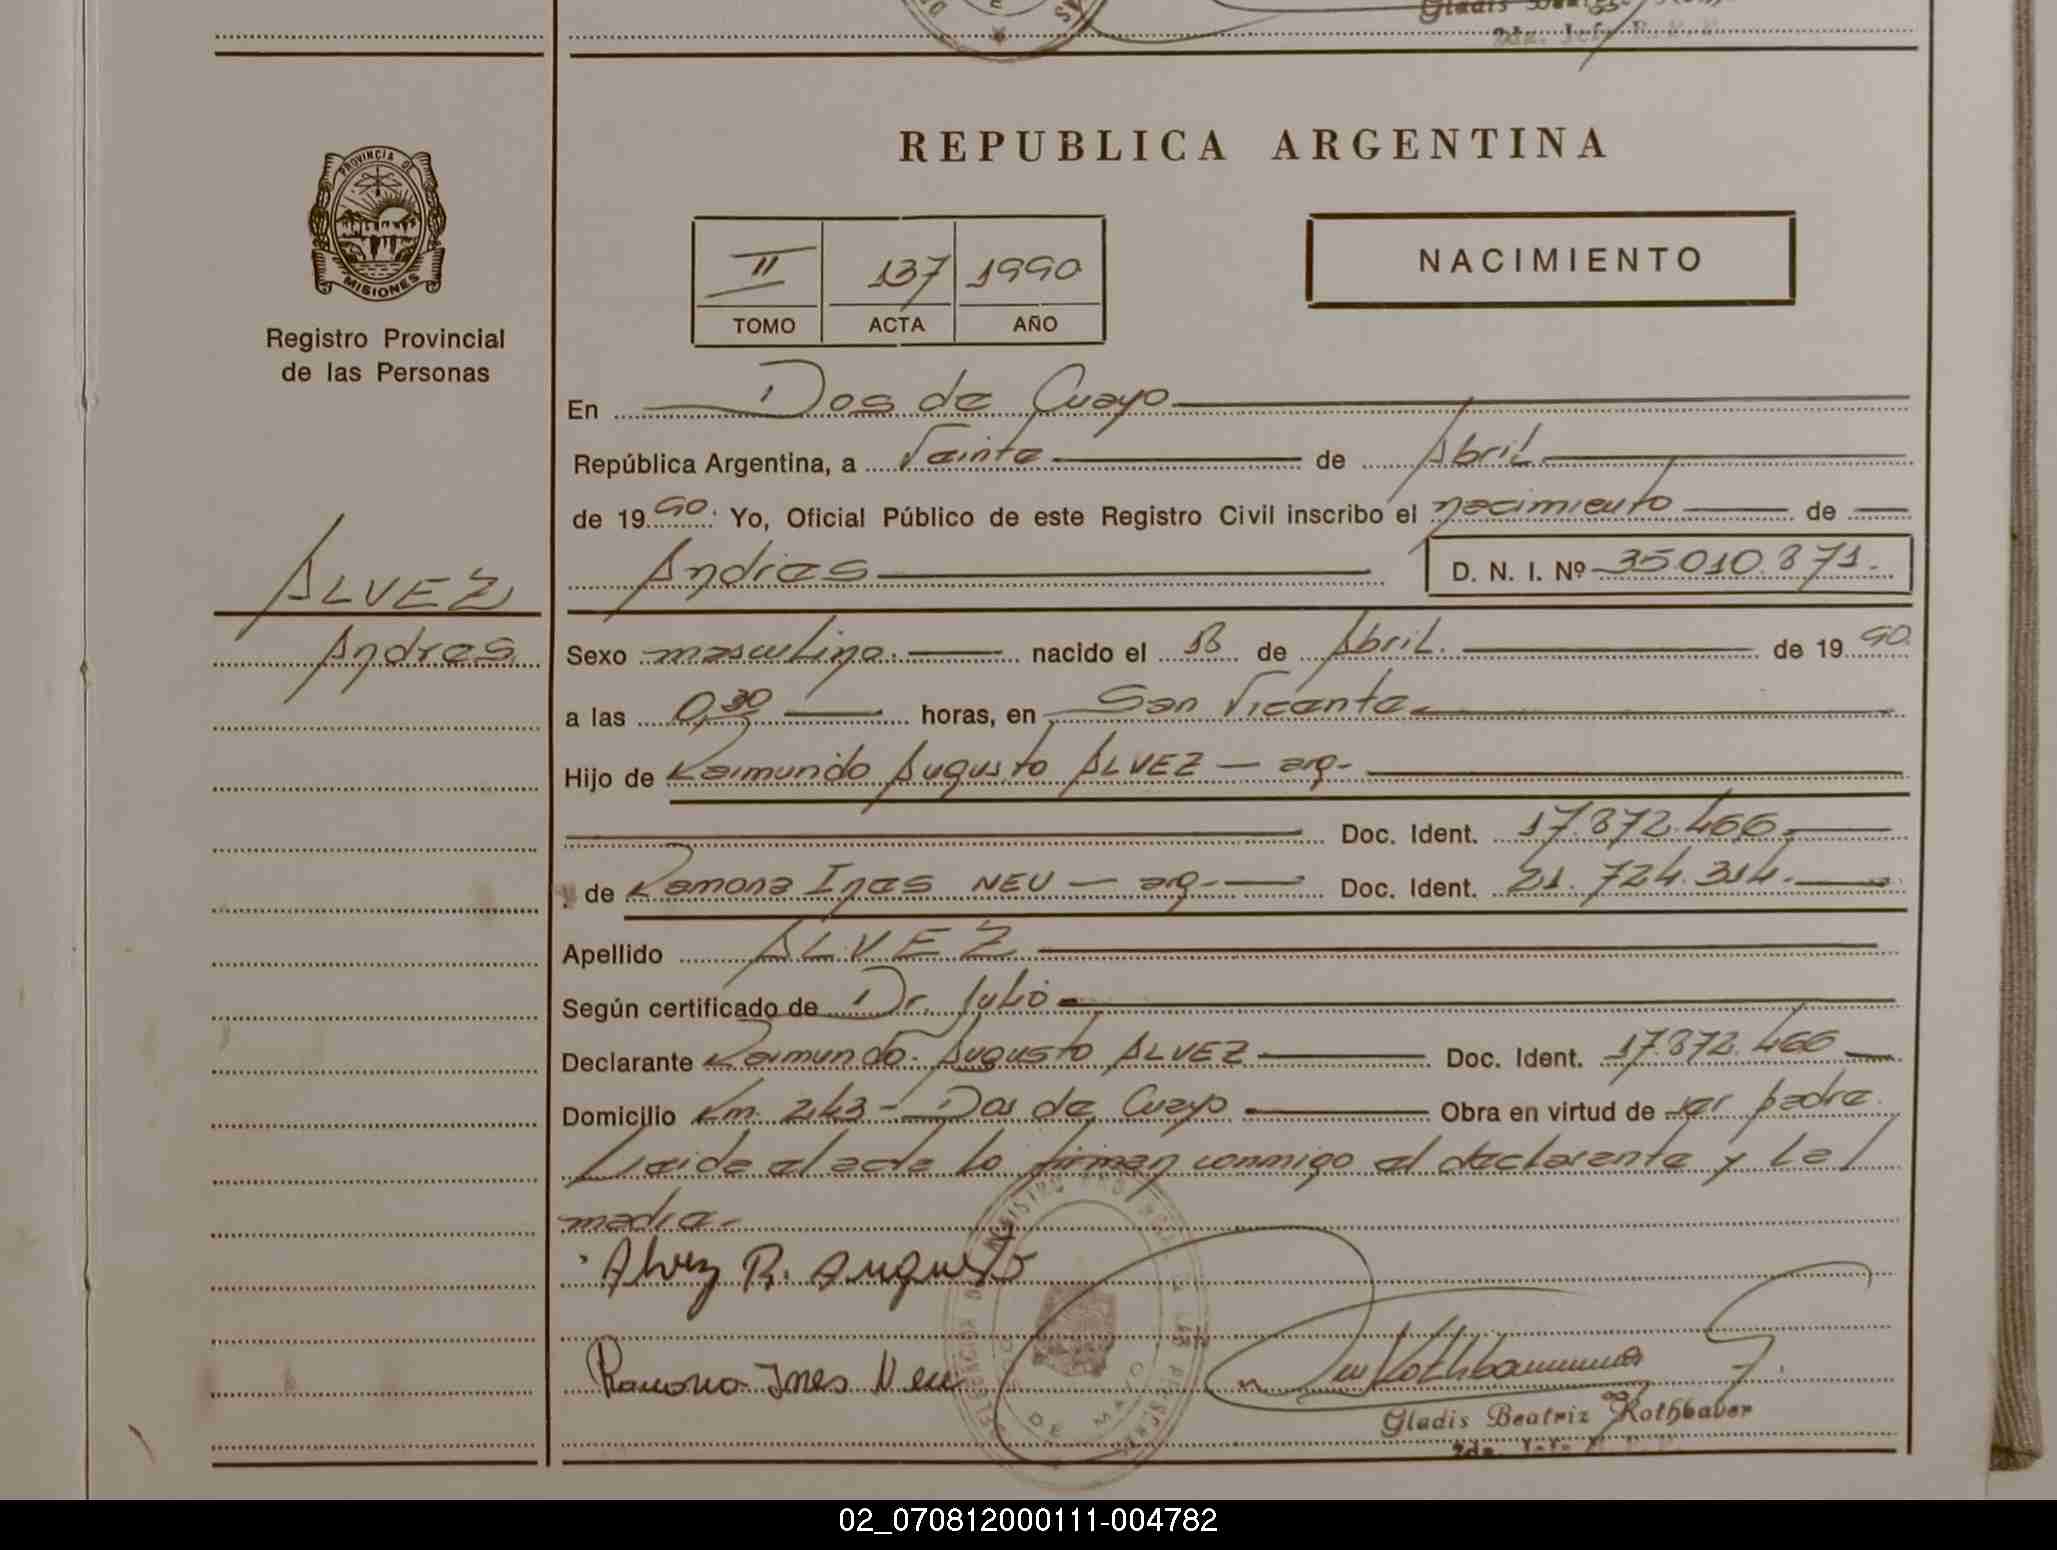 Gladis
REPUBLICA ARGENTINA
PROVINCIA DE
MISIONES
Registro Provincial
de las Personas
II 137 1990
TOMO ACTA AÑO
NACIMIENTO
En Dos de Mayo
República Argentina, a Veinte de Abril
de 1990. Yo, Oficial Público de este Registro Civil inscribo el nacimiento de
Andres D. N. I. Nº 35010.871.
ALVEZ
Andres
Sexo masculino. nacido el 18 de Abril. de 1990.
a las 0,30 horas, en San Vicente
Hijo de Raimundo Augusto ALVEZ — arg-
Doc. Ident. 17.872.466.
y de Ramona Ines NEU — arg- Doc. Ident. 21.724.314.
Apellido ALVEZ
Según certificado de Dr. Julio
Declarante Raimundo Augusto ALVEZ Doc. Ident. 17.872.466
Domicilio Km. 243 - Dos de Mayo Obra en virtud de ser padre
Leida el acta lo firman conmigo el declarante y la
madre-
Alvez R. Augusto
Ramona Ines Neu
DE MAYO
Gladis Beatriz Rothbaber
02_070812000111-004782